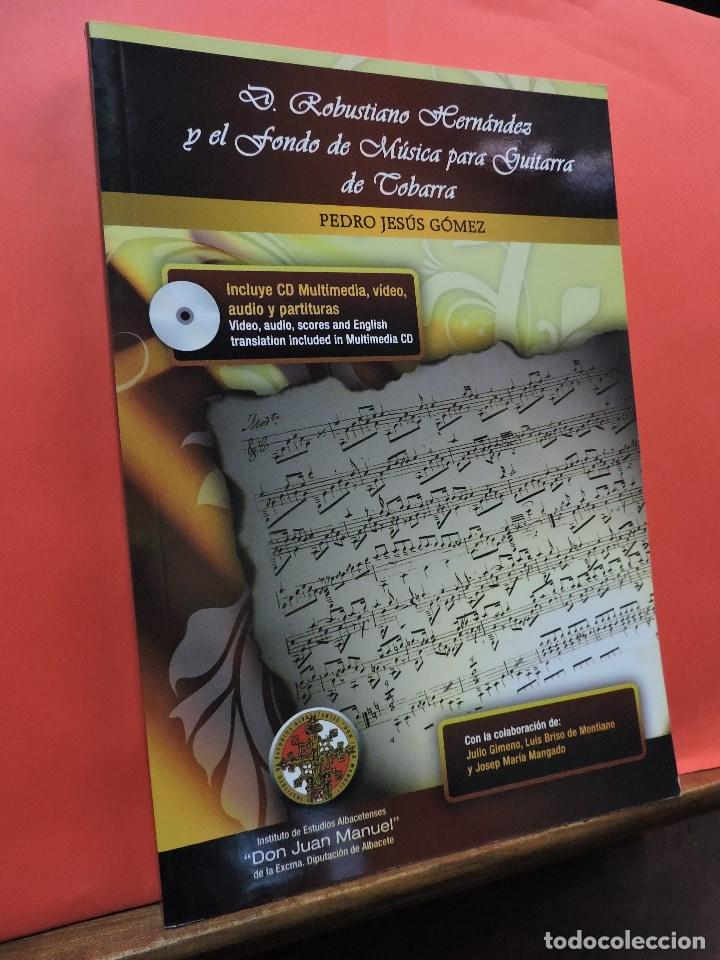 D. Robustiano Hernández
y el Fondo de Música para Guitarra
de Tobarra
PEDRO JESÚS GÓMEZ
Incluye CD Multimedia, vídeo,
audio y partituras
Video, audio, scores and English
translation included in Multimedia CD
Modto.
Con la colaboración de:
Julio Gimeno, Luis Briso de Montiano
y Josep María Mangado
Instituto de Estudios Albacetenses
"Don Juan Manuel"
de la Excma. Diputación de Albacete
todocoleccion
todocoleccion.net